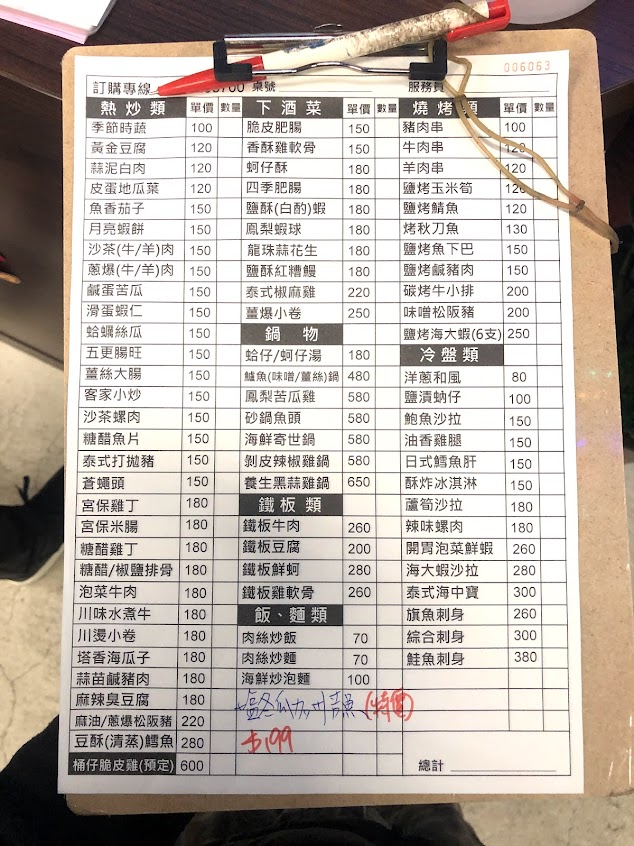 006063
訂購專線 桌號 服務員
熱炒類 單價 數量
季節時蔬 100
黃金豆腐 120
蒜泥白肉 120
皮蛋地瓜葉 120
魚香茄子 150
月亮蝦餅 150
沙茶(牛/羊)肉 150
蔥爆(牛/羊)肉 150
鹹蛋苦瓜 150
滑蛋蝦仁 150
蛤蠣絲瓜 150
五更腸旺 150
薑絲大腸 150
客家小炒 150
沙茶螺肉 150
糖醋魚片 150
泰式打拋豬 150
蒼蠅頭 150
宮保雞丁 180
宮保米腸 180
糖醋雞丁 180
糖醋/椒鹽排骨 180
泡菜牛肉 180
川味水煮牛 180
川燙小卷 180
塔香海瓜子 180
蒜苗鹹豬肉 180
麻辣臭豆腐 180
麻油/蔥爆松阪豬 220
豆酥(清蒸)鱈魚 280
桶仔脆皮雞(預定) 600
下酒菜 單價 數量
脆皮肥腸 150
香酥雞軟骨 150
蚵仔酥 180
四季肥腸 180
鹽酥(白酌)蝦 180
鳳梨蝦球 180
龍珠蒜花生 180
鹽酥紅糟鰻 180
泰式椒麻雞 220
薑爆小卷 250
鍋物
蛤仔/蚵仔湯 180
鱸魚(味噌/薑絲)鍋 480
鳳梨苦瓜雞 580
砂鍋魚頭 580
海鮮寄世鍋 580
剝皮辣椒雞鍋 580
養生黑蒜雞鍋 650
鐵板類
鐵板牛肉 260
鐵板豆腐 200
鐵板鮮蚵 280
鐵板雞軟骨 260
飯、麵類
肉絲炒飯 70
肉絲炒麵 70
海鮮炒泡麵 100
(特價)
$199
燒烤類 單價 數量
豬肉串 100
牛肉串 120
羊肉串
鹽烤玉米筍 120
鹽烤鯖魚 120
烤秋刀魚 130
鹽烤魚下巴 150
鹽烤鹹豬肉 150
碳烤牛小排 200
味噌松阪豬 200
鹽烤海大蝦(6支) 250
冷盤類
洋蔥和風 80
鹽漬蚋仔 100
鮑魚沙拉 150
油香雞腿 150
日式鱈魚肝 150
酥炸冰淇淋 150
蘆筍沙拉 180
辣味螺肉 180
開胃泡菜鮮蝦 260
海大蝦沙拉 280
泰式海中寶 300
旗魚刺身 260
綜合刺身 300
鮭魚刺身 380
總計